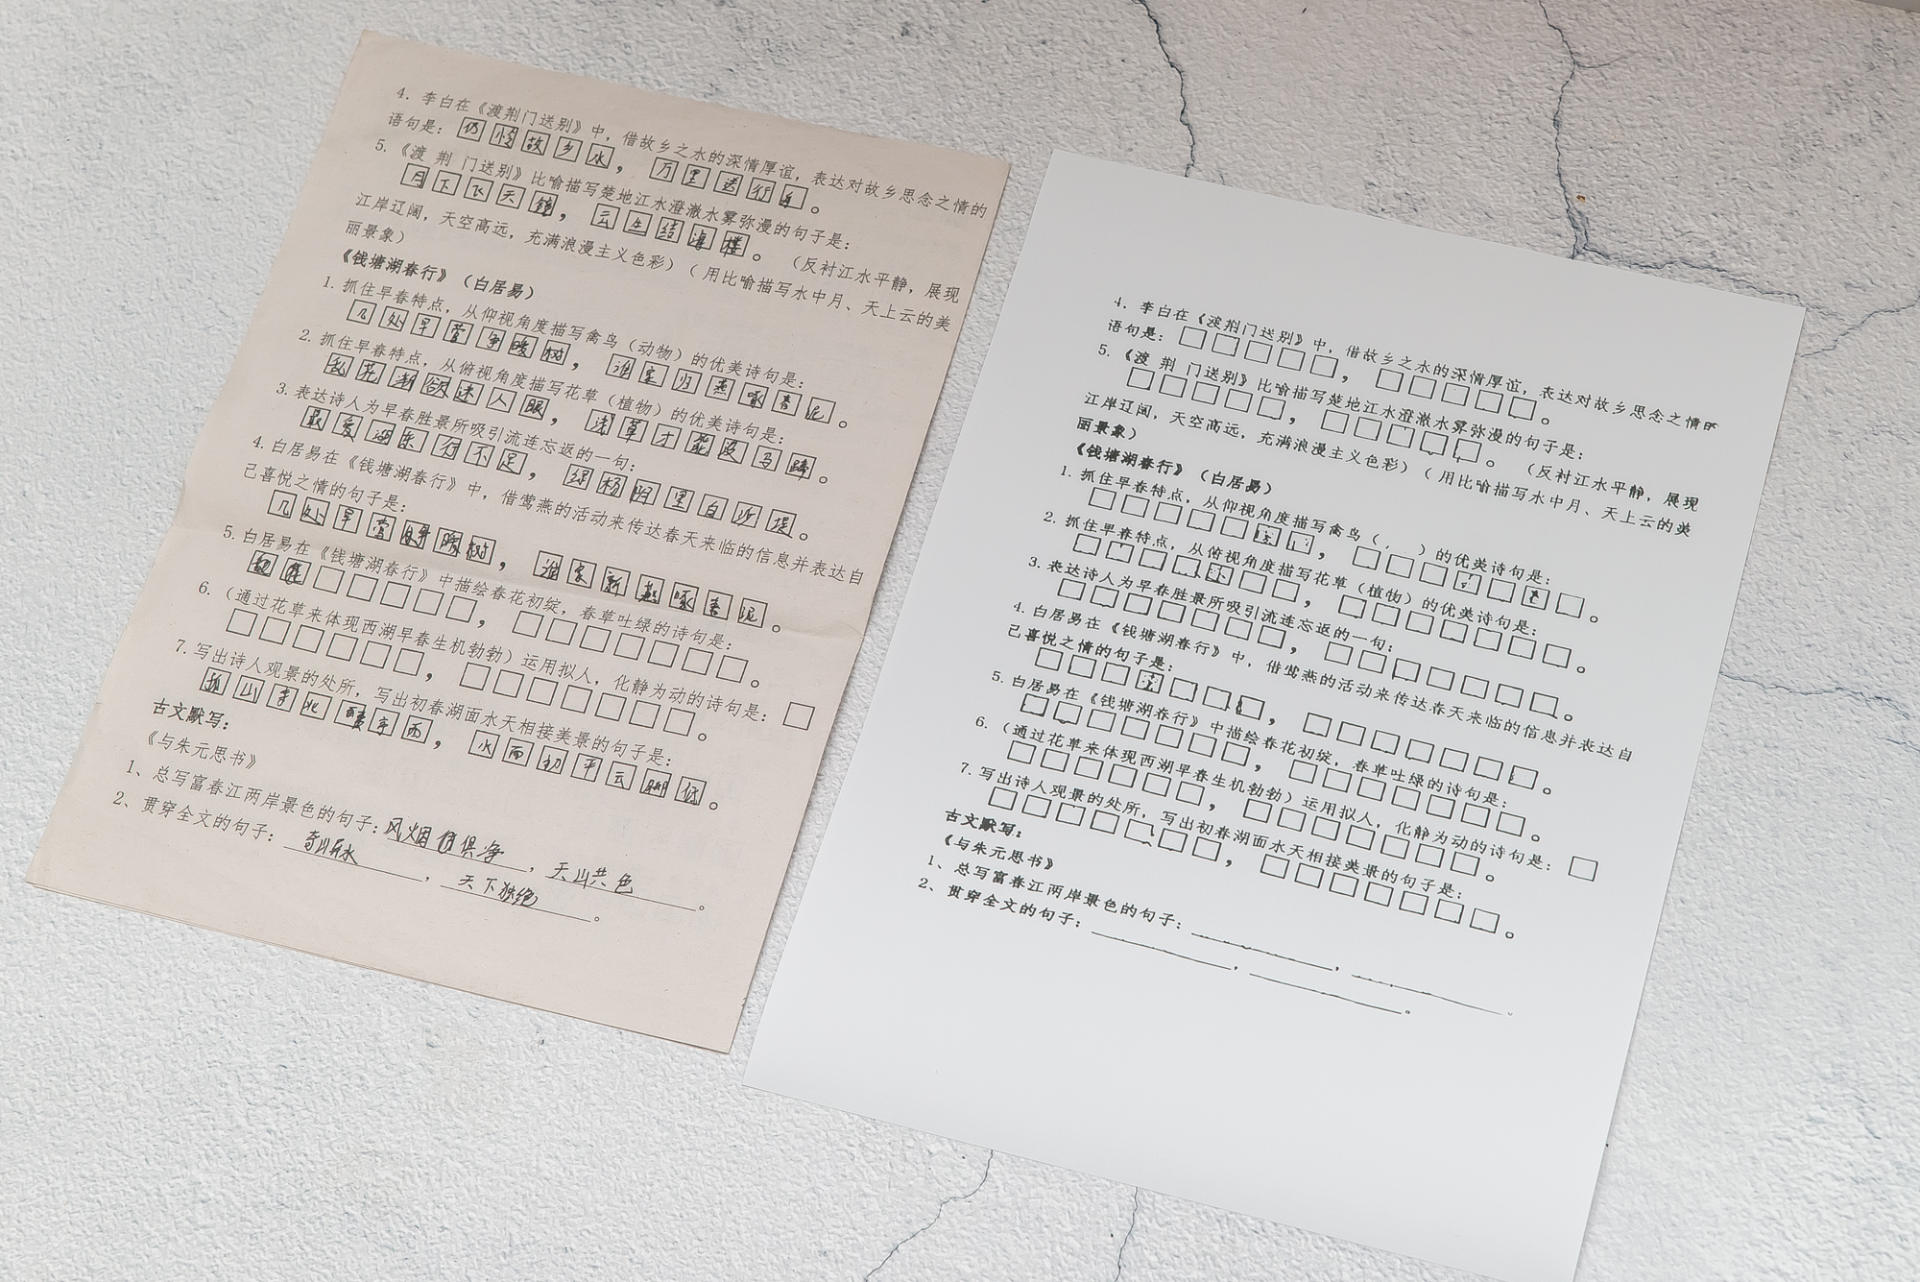 4. 李白在《渡荆门送别》中，借故乡之水的深情厚谊，表达对故乡思念之情的
语句是：仍怜故乡水，万里送行舟。
5. 《渡 荆 门送别》比喻描写楚地江水澄澈水雾弥漫的句子是：
月下飞天镜，云生结海楼。（反衬江水平静，展现
江岸辽阔，天空高远，充满浪漫主义色彩）（用比喻描写水中月、天上云的美
丽景象）
《钱塘湖春行》（白居易）
1. 抓住早春特点，从仰视角度描写禽鸟（动物）的优美诗句是：
几处早莺争暖树，谁家归燕啄春泥。
2. 抓住早春特点，从俯视角度描写花草（植物）的优美诗句是：
乱花渐欲迷人眼，浅草才能没马蹄。
3. 表达诗人为早春胜景所吸引流连忘返的一句：
最爱湖东行不足，绿杨阴里白沙堤。
4. 白居易在《钱塘湖春行》中，借莺燕的活动来传达春天来临的信息并表达自
己喜悦之情的句子是：
几处早莺争暖树，谁家新燕啄春泥。
5. 白居易在《钱塘湖春行》中描绘春花初绽，春草吐绿的诗句是：
□□□□□，□□□□□□□。
6. （通过花草来体现西湖早春生机勃勃）运用拟人，化静为动的诗句是：□
□□□□□□，□□□□□□□。
7. 写出诗人观景的处所，写出初春湖面水天相接美景的句子是：
孤山寺北 亭西，水面初平云脚低。
古文默写：
《与朱元思书》
1、总写富春江两岸景色的句子：风烟俱净，天山共色。
2、贯穿全文的句子：奇山异水，天下独绝。
4. 李白在《渡荆门送别》中，借故乡之水的深情厚谊，表达对故乡思念之情的
语句是：□□□□□，□□□□□。
5. 《渡 荆 门送别》比喻描写楚地江水澄澈水雾弥漫的句子是：
□□□□□，□□□□□。（反衬江水平静，展现
江岸辽阔，天空高远，充满浪漫主义色彩）（用比喻描写水中月、天上云的美
丽景象）
《钱塘湖春行》（白居易）
1. 抓住早春特点，从仰视角度描写禽鸟（ ）的优美诗句是：
□□□□□□□，□□□□□□□。
2. 抓住早春特点，从俯视角度描写花草（植物）的优美诗句是：
□□□□□□□，□□□□□□□。
3. 表达诗人为早春胜景所吸引流连忘返的一句：
□□□□□□□，□□□□□□□。
4. 白居易在《钱塘湖春行》中，借莺燕的活动来传达春天来临的信息并表达自
己喜悦之情的句子是：
□□□□□□□，□□□□□□□。
5. 白居易在《钱塘湖春行》中描绘春花初绽，春草吐绿的诗句是：
□□□□□□□，□□□□□□□。
6. （通过花草来体现西湖早春生机勃勃）运用拟人，化静为动的诗句是：□
□□□□□□，□□□□□□□。
7. 写出诗人观景的处所，写出初春湖面水天相接美景的句子是：
□□□□□□□，□□□□□□□。
古文默写：
《与朱元思书》
1、总写富春江两岸景色的句子：，。
2、贯穿全文的句子：，。